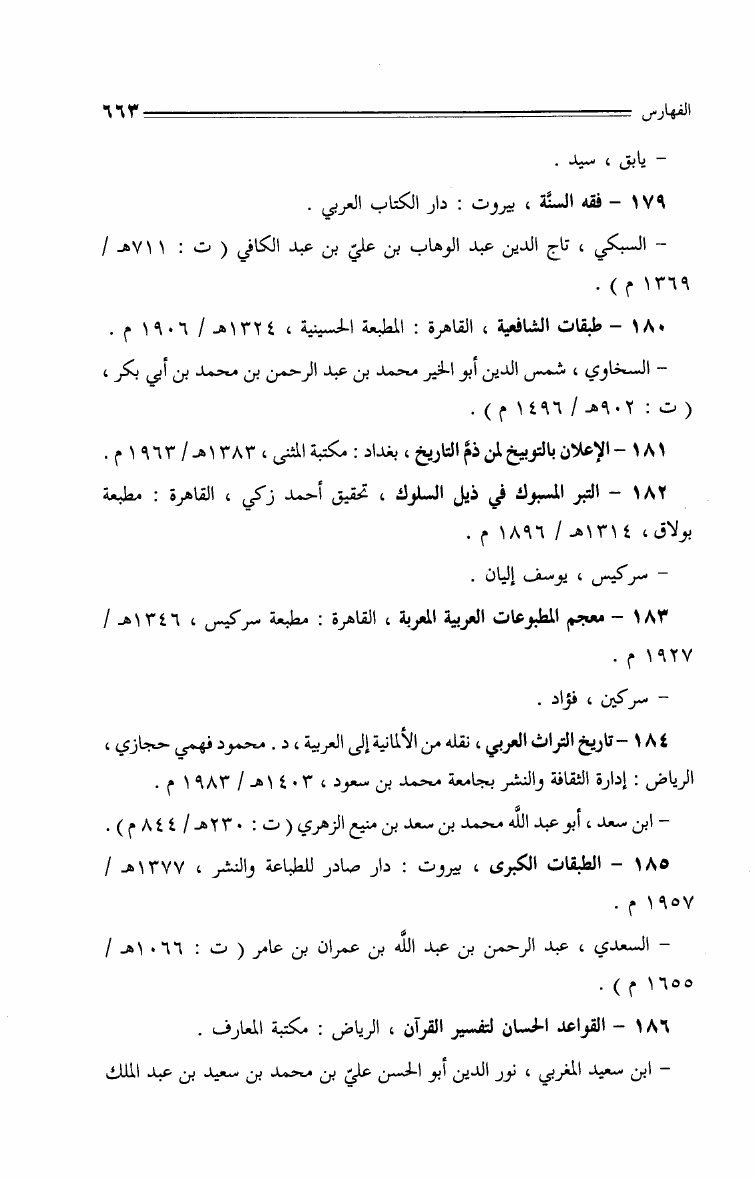 الفهارس ٦٦٣
– يابق ، سيد .
١٧٩ – فقه السنَّة ، بيروت : دار الكتاب العربي .
– السبكي ، تاج الدين عبد الوهاب بن عليّ بن عبد الكافي ( ت : ٧١١هـ /
١٣٦٩ م ) .
١٨٠ – طبقات الشافعية ، القاهرة : المطبعة الحسينية ، ١٣٢٤هـ / ١٩٠٦ م .
– السخاوي ، شمس الدين أبو الخير محمد بن عبد الرحمن بن محمد بن أبي بكر ،
( ت : ٩٠٢هـ / ١٤٩٦ م ) .
١٨١ – الإعلان بالتوبيخ لمن ذمَّ التاريخ ، بغداد : مكتبة المثنى ، ١٣٨٣هـ / ١٩٦٣ م .
١٨٢ – التبر المسبوك في ذيل السلوك ، تحقيق أحمد زكي ، القاهرة : مطبعة
بولاق ، ١٣١٤هـ / ١٨٩٦ م .
– سركيس ، يوسف إليان .
١٨٣ – معجم المطبوعات العربية المعربة ، القاهرة : مطبعة سركيس ، ١٣٤٦هـ /
١٩٢٧ م .
– سركين ، فؤاد .
١٨٤ – تاريخ التراث العربي ، نقله من الألمانية إلى العربية ، د . محمود فهمي حجازي ،
الرياض : إدارة الثقافة والنشر بجامعة محمد بن سعود ، ١٤٠٣هـ / ١٩٨٣ م .
– ابن سعد ، أبو عبد اللَّه محمد بن سعد بن منيع الزهري ( ت : ٢٣٠هـ / ٨٤٤ م ) .
١٨٥ – الطبقات الكبرى ، بيروت : دار صادر للطباعة والنشر ، ١٣٧٧هـ /
١٩٥٧ م .
– السعدي ، عبد الرحمن بن عبد اللَّه بن عمران بن عامر ( ت : ١٠٦٦هـ /
١٦٥٥ م ) .
١٨٦ – القواعد الحسان لتفسير القرآن ، الرياض : مكتبة المعارف .
– ابن سعيد المغربي ، نور الدين أبو الحسن عليّ بن محمد بن سعيد بن عبد الملك